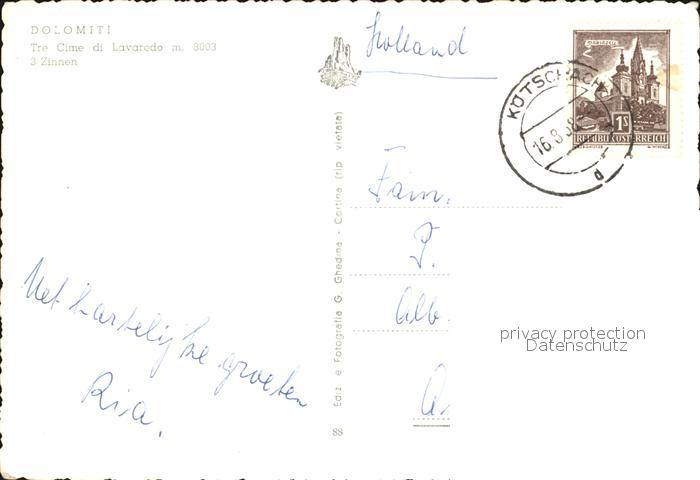 DOLOMITI
Tre Cime di Lavaredo m. 3003
3 Zinnen
Holland
MARIAZELL
1S
REPUBLIK ÖSTERREICH
KÖTSCHACH
16.8.58
d
Fam.
J.
Alb.
A
privacy protection
Datenschutz
Met hartelijke groeten
Ria.
Ediz e Fotografia G. Ghedina - Cortina (rip vietata)
88